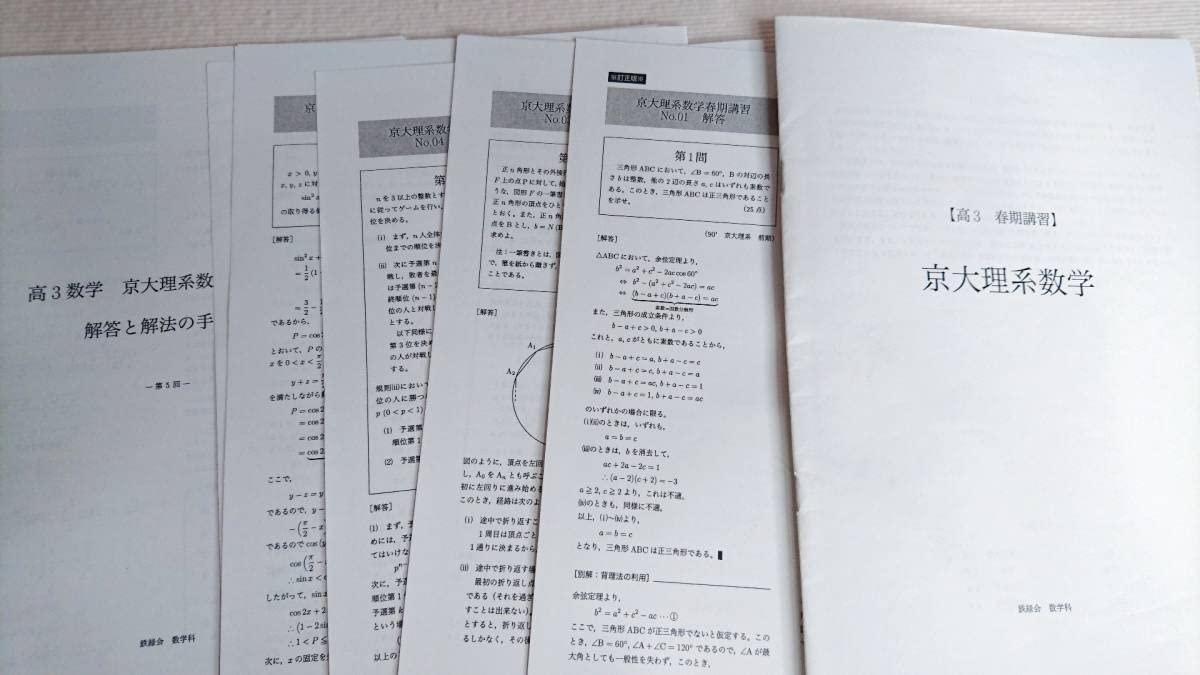 高3数学 京大理系数
解答と解法の手
―第5回―
鉄緑会 数学科
京
x > 0, y
x, y, z に対
sin²
の取り得る値
[解答]
sin² x +
= 1/2 (1 -
= 3/2 -
であるから,
P = cos
とおいて, P の
x を 0 < x < π/2
y + z =
を満たしながら
P = cos 2
= cos 2
= cos 2
= cos 2
ここで,
y - z = y
であるので, y -
-(π/2 - x
であるので cos(y
cos(π/2
∴ sin x < c
したがって, sin x
cos 2x + 2
∴ (1 - 2 sin
∴ 1 < P ≦
次に, x の固定を
京大理系数学
No.04
第
n を3以上の整数とす
に従ってゲームを行い,
位を決める.
(i) まず, n 人全体
位までの順位を決
(ii) 次に予選第 n
戦し, 敗者を最
は予選第 (n - 1)
終順位 (n - 1)
位の人と対戦し
とする.
以下同様に
第3位を決め
の人が対戦し
する.
規則(ii)において
位の人に勝つ
p (0 < p < 1)
(1) 予選第
順位第1
(2) 予選第
[解答]
(1) まず, 予
めには, 予
てはいけな
pⁿ⁻
次に, 予
順位第1
予選第 k
という場
以上の
京大理系数
No.0
第
正 n 角形とその外接
F 上の点 P に対して, 始
うな, 図形 F の一筆書
正 n 角形の頂点をひと
とおく. また, 正 n 角
点を B とし, b = N(B
求めよ.
注：一筆書きとは,
で, 筆を紙から離さず,
ことである.
[解答]
A₁
A₂
図のように, 頂点を左回
し, A₀ を Aₙ とも呼ぶこ
初に左回りに進み始める
このとき, 経路は次のよ
(i) 途中で折り返すこ
1周目は頂点ごと
1通りに決まるから
(ii) 途中で折り返す場
最初の折り返し点
である (それを過ぎ
すことは出来ない).
とすると, 折り返し
るしかなく, その後
※訂正版※
京大理系数学春期講習
No.01 解答
第1問
三角形 ABC において, ∠B = 60°, B の対辺の長
さ b は整数, 他の2辺の長さ a, c はいずれも素数で
ある. このとき, 三角形 ABC は正三角形であること
を示せ.
(25点)
(90' 京大理系 前期)
[解答]
△ABC において, 余弦定理より,
b² = a² + c² - 2ac cos 60°
⇔ b² - (a² + c² - 2ac) = ac
⇔ (b - a + c)(b + a - c) = ac
素数→因数分解形
また, 三角形の成立条件より,
b - a + c > 0, b + a - c > 0
これと, a, c がともに素数であることから,
(i) b - a + c = a, b + a - c = c
(ii) b - a + c = c, b + a - c = a
(iii) b - a + c = ac, b + a - c = 1
(iv) b - a + c = 1, b + a - c = ac
のいずれかの場合に限る.
(i)(ii)のときは, いずれも,
a = b = c
(iii)のときは, b を消去して,
ac + 2a - 2c = 1
∴ (a - 2)(c + 2) = -3
a ≧ 2, c ≧ 2 より, これは不適.
(iv)のときも, 同様に不適.
以上, (i)~(iv)より,
a = b = c
となり, 三角形 ABC は正三角形である.
[別解：背理法の利用]
余弦定理より,
b² = a² + c² - ac … ①
ここで, 三角形 ABC が正三角形でないと仮定する. この
とき, ∠B = 60°, ∠A + ∠C = 120° であるので, ∠A が最
大角としても一般性を失わず, このとき,
【高3 春期講習】
京大理系数学
鉄緑会 数学科